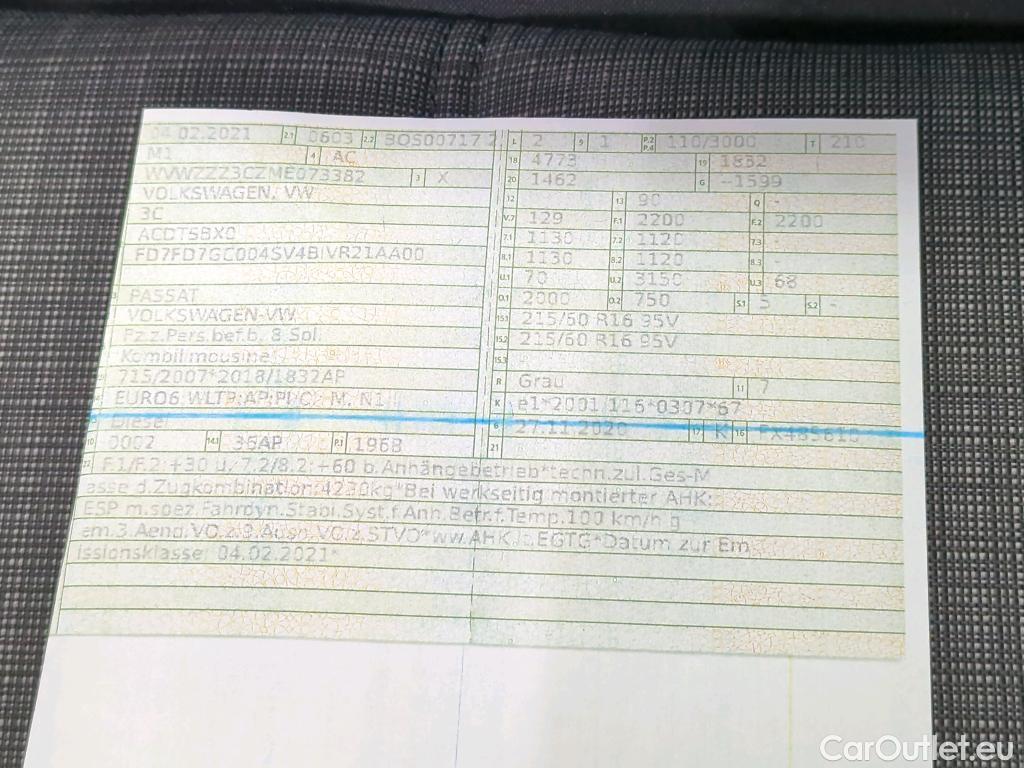 04.02.2021 2.1 0603 2.2 BOS00717 2
M1 4 AC
WVWZZZ3CZME073382 3 X
VOLKSWAGEN, VW
3C
ACDTSBX0
FD7FD7GC004SV4BIVR21AA00
PASSAT
VOLKSWAGEN-VW
Fz.z.Pers.bef.b. 8 Spl.
Kombilimousine
715/2007*2018/1832AP
EURO6 WLTP;AP;PI/CI M, N1 I
Diesel
10 0002 14.1 36AP P.1 1968
L 2 9 1 P.2 P.4 110/3000 T 210
18 4773 19 1832
20 1462 G -1599
12 - 13 90 Q -
V.7 129 F.1 2200 F.2 2200
7.1 1130 7.2 1120 7.3 -
8.1 1130 8.2 1120 8.3 -
U.1 70 U.2 3150 U.3 68
O.1 2000 O.2 750 S.1 5 S.2 -
15.1 215/60 R16 95V
15.2 215/60 R16 95V
15.3
R Grau 11 7
K e1*2001/116*0307*67
6 27.11.2020 17 K 16
21
22 F.1/F.2:+30 u. 7.2/8.2:+60 b.Anhängebetrieb*techn.zul.Ges-M
asse d.Zugkombination:4230kg*Bei werkseitig montierter AHK:
ESP m.spez.Fahrdyn.Stabi.Syst.f.Anh.Betr.f.Temp.100 km/h g
em.3.Aend.VO.z.9.Ausn.VO.z.STVO*ww.AHK lt.EGTG*Datum zur Em
issionsklasse: 04.02.2021*
CarOutlet.eu